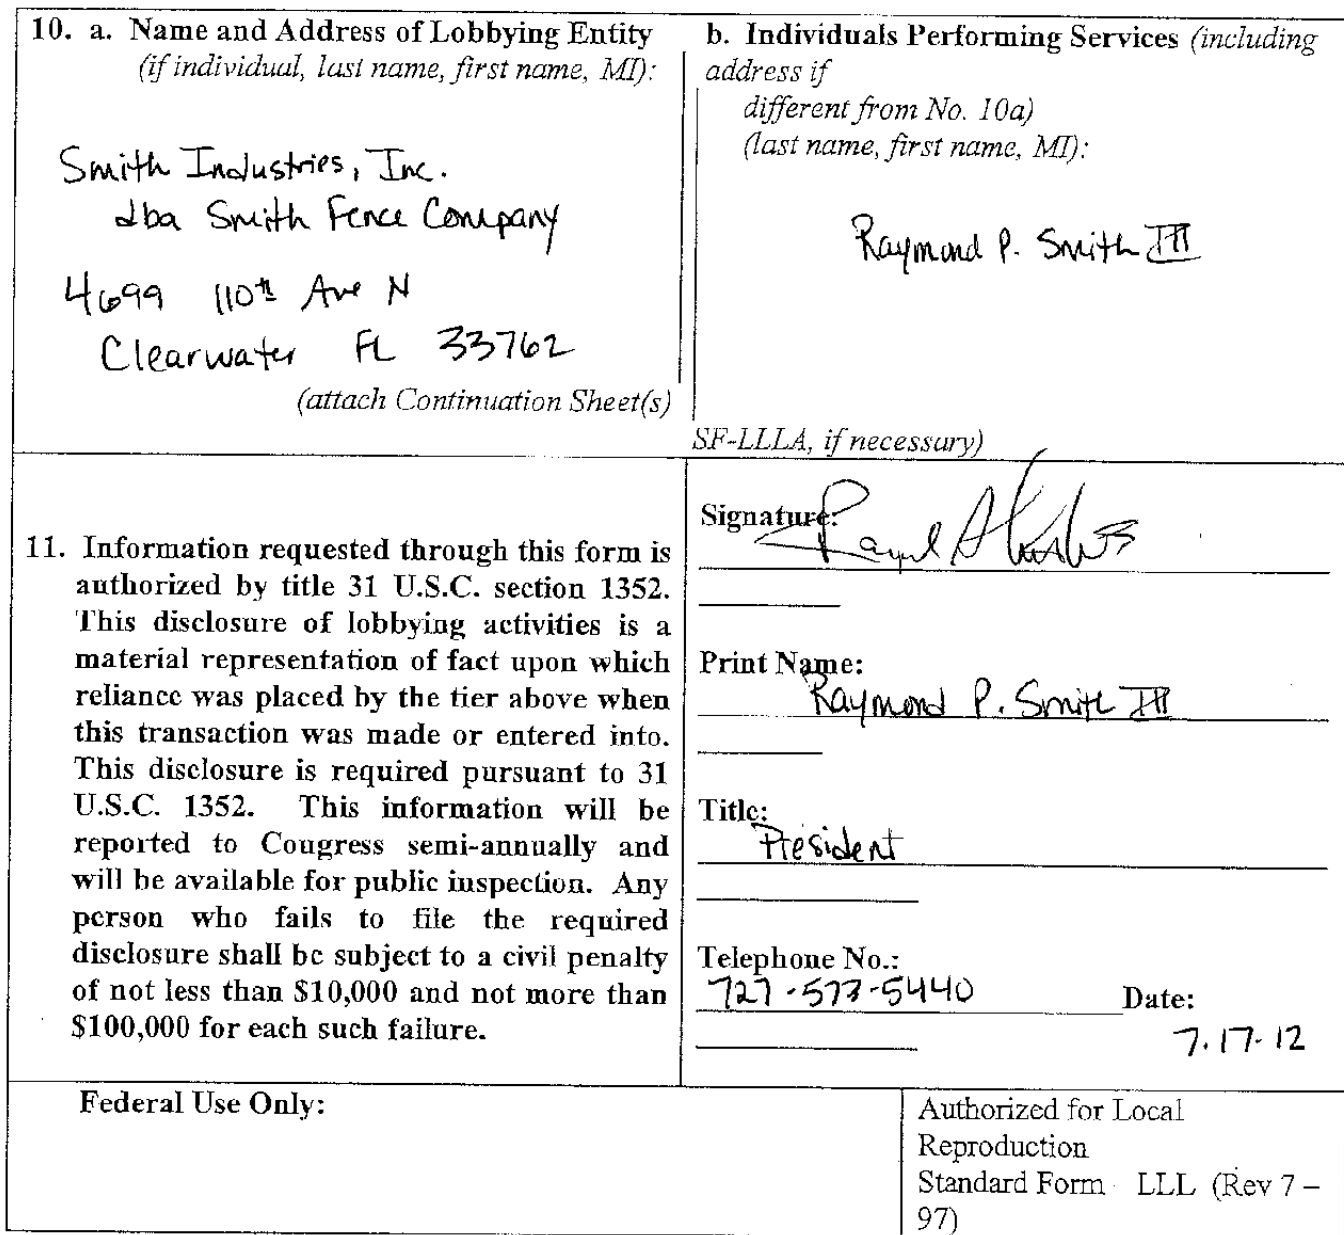 10. a. Name and Address of Lobbying Entity
(if individual, last name, first name, MI):
Smith Industries, Inc.
dba Smith Fence Company
4699 110th Ave N
Clearwater FL 33762
(attach Continuation Sheet(s)
b. Individuals Performing Services (including
address if
different from No. 10a)
(last name, first name, MI):
Raymond P. Smith III
SF-LLLA, if necessary)
11. Information requested through this form is
authorized by title 31 U.S.C. section 1352.
This disclosure of lobbying activities is a
material representation of fact upon which
reliance was placed by the tier above when
this transaction was made or entered into.
This disclosure is required pursuant to 31
U.S.C. 1352. This information will be
reported to Congress semi-annually and
will be available for public inspection. Any
person who fails to file the required
disclosure shall be subject to a civil penalty
of not less than $10,000 and not more than
$100,000 for each such failure.
Signature:
Print Name:
Raymond P. Smith III
Title:
President
Telephone No.:
727-573-5440 Date:
7.17.12
Federal Use Only:
Authorized for Local
Reproduction
Standard Form LLL (Rev 7 –
97)